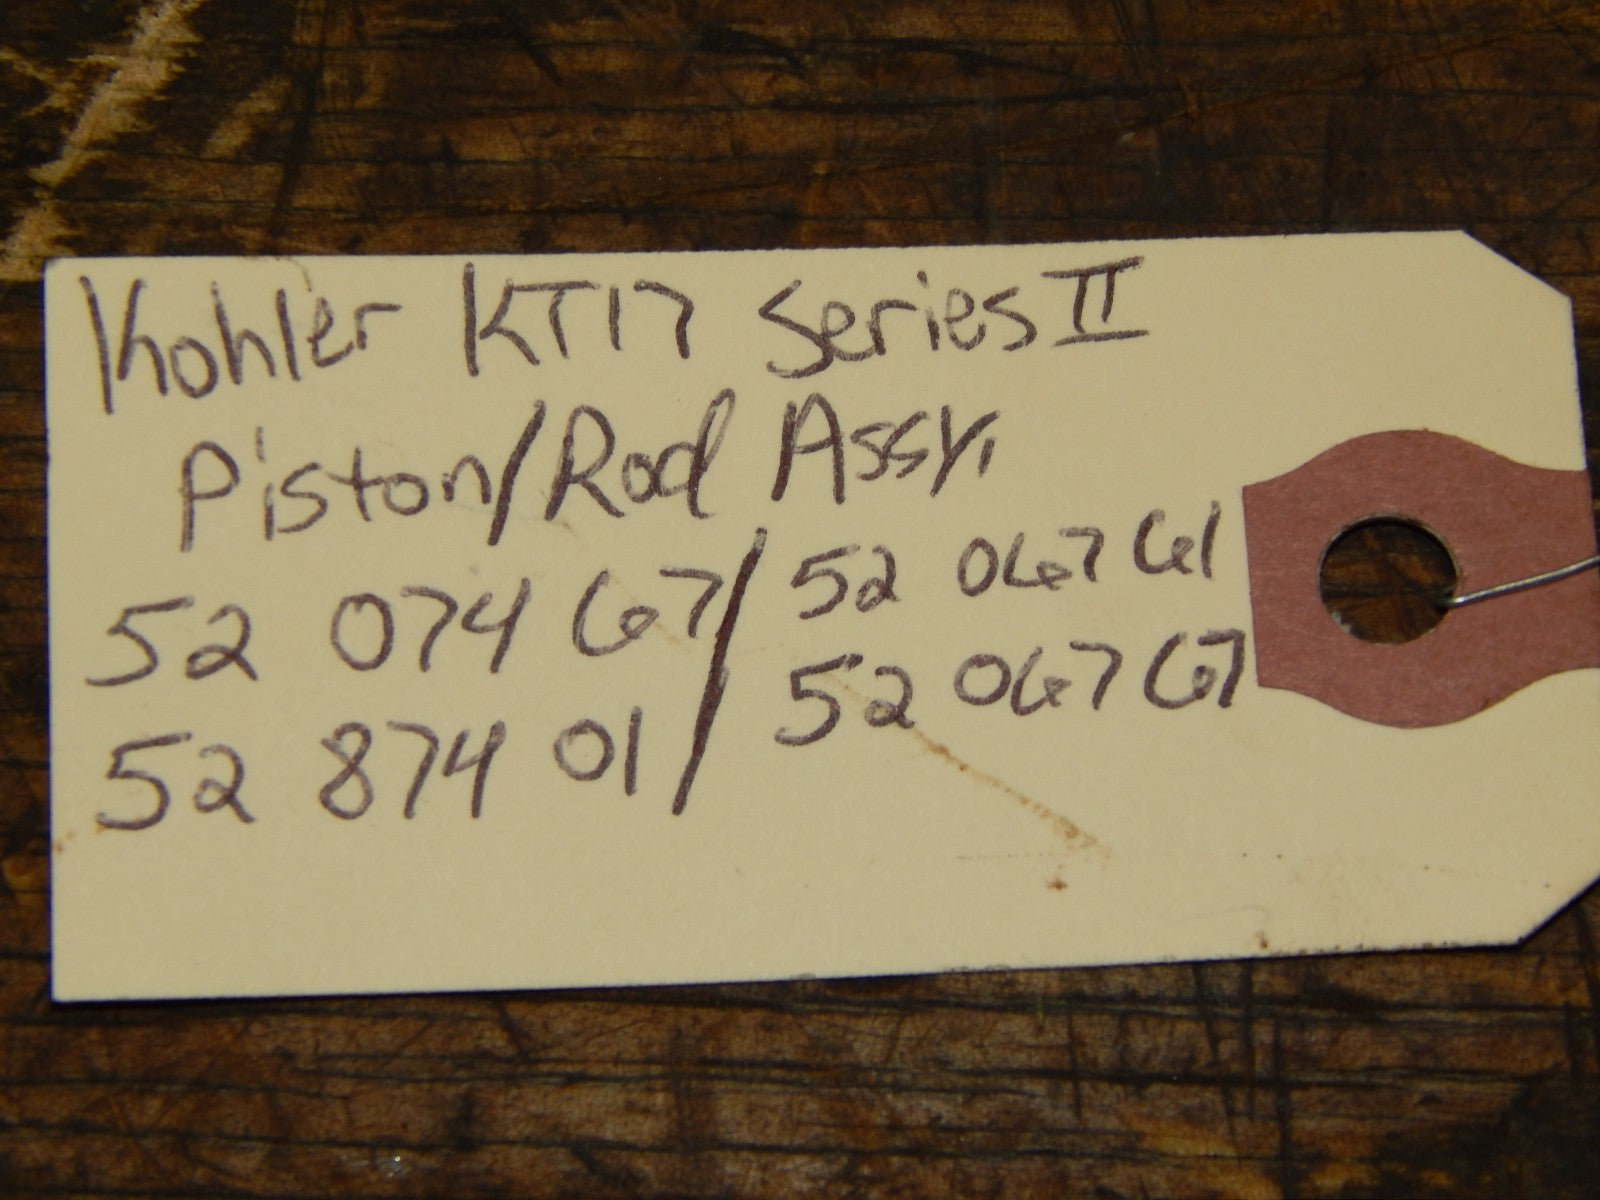 Kohler KT17 Series II
Piston/Rod Assy.
52 074 67/52 067 61
52 874 01/52 067 67